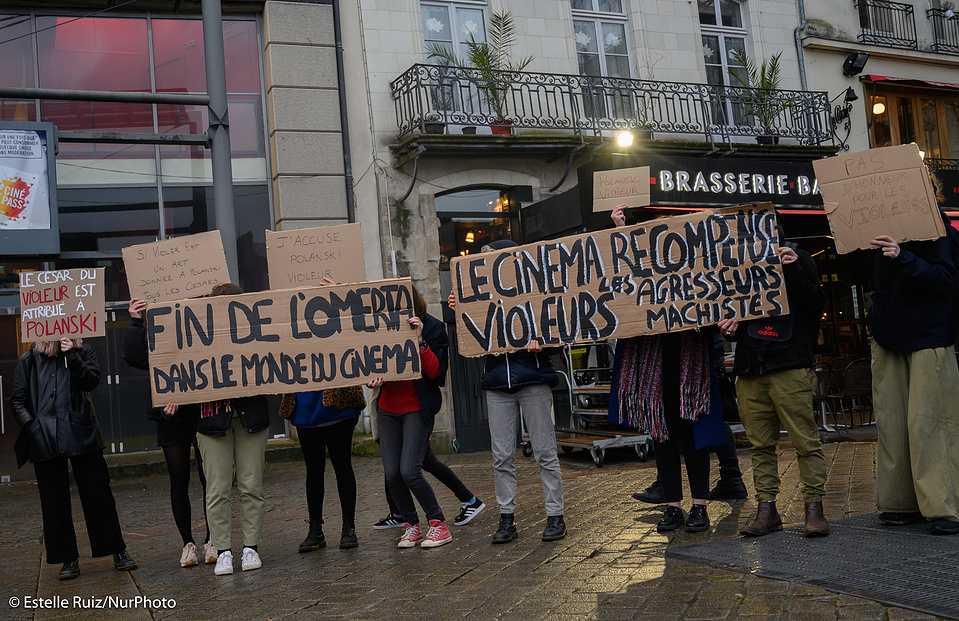 CINÉ
PASS
LE CESAR DU
VIOLEUR EST
ATTRIBUÉ À
POLANSKI
SI VIOLER EST
UN ART
DONNER À POLANSKI
TOUS LES CESARS
J'ACCUSE
POLANSKI
VIOLEUR
FIN DE L'OMERTA
DANS LE MONDE DU CINÉMA
POLANSKI
VIOLEUR
BRASSERIE•BA
LE CINÉMA RECOMPENSE
VIOLEURS LES AGRESSEURS
MACHISTES
PAS
D'HONNEUR
POUR LES
VIOLEURS
adidas
© Estelle Ruiz/NurPhoto